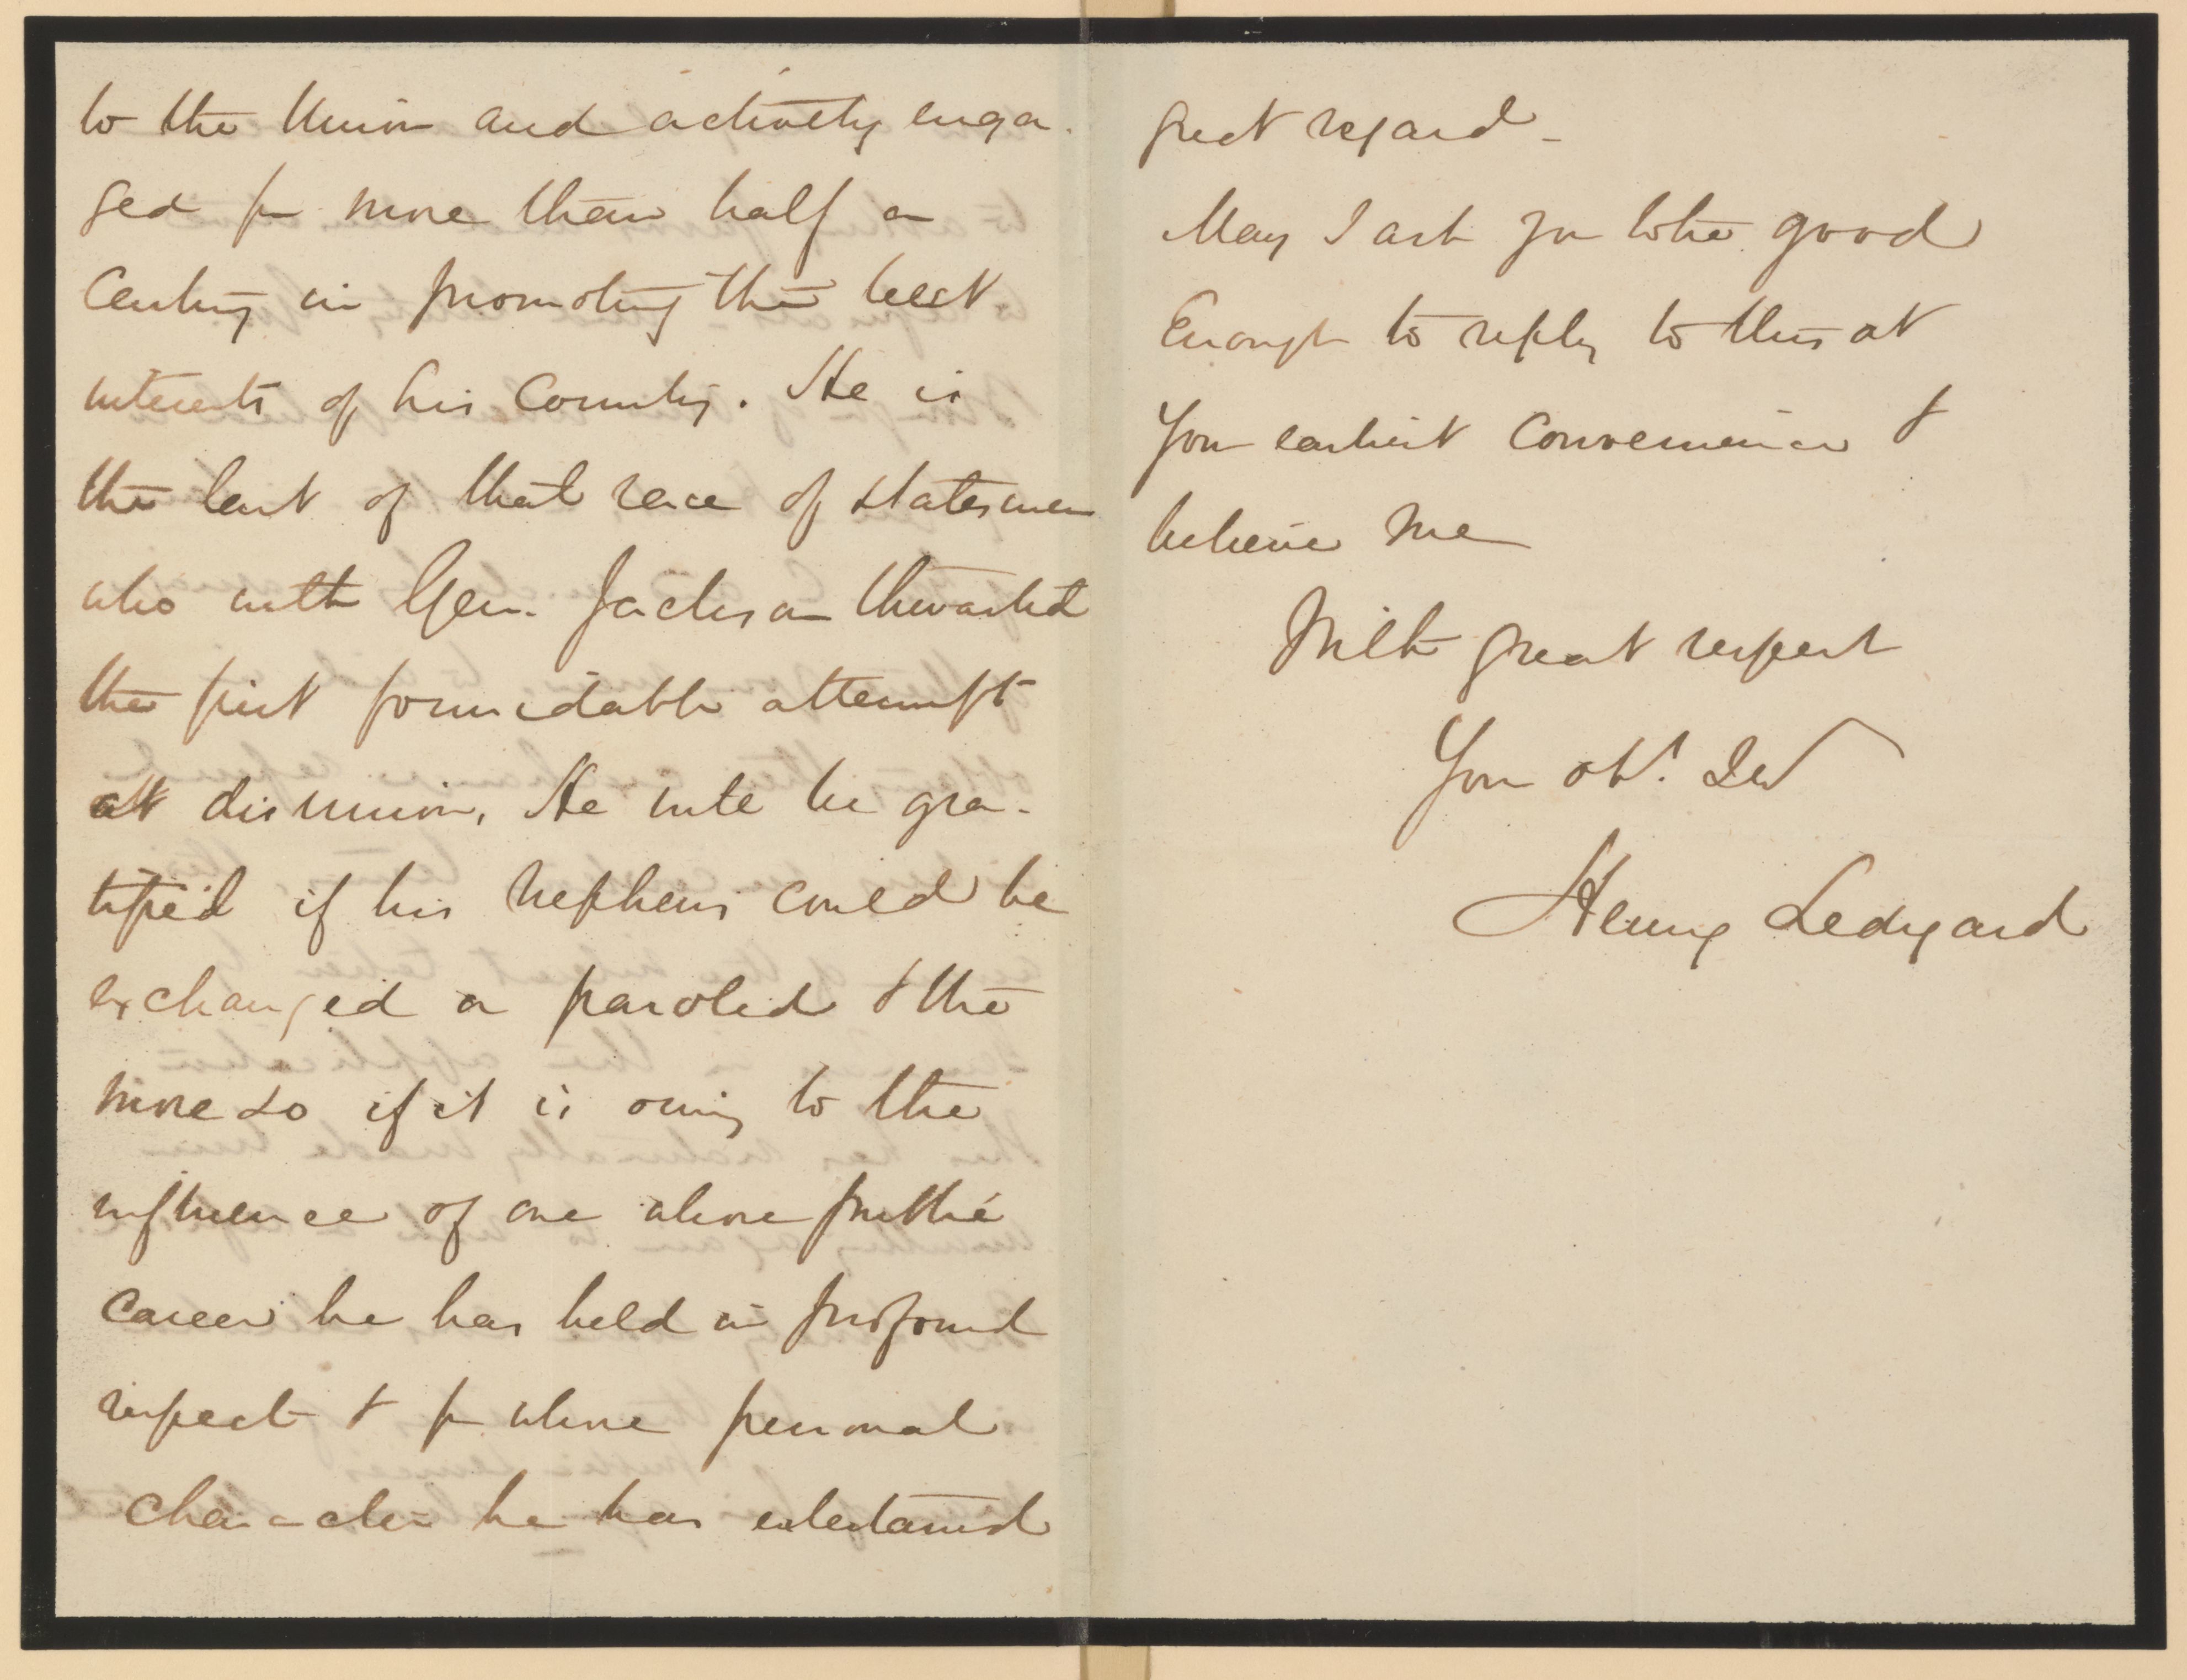 to the Union and actively enga-
ged for more than half a
Century in promoting the best
interests of his Country. He is
the last of that race of statesmen
who with Gen. Jackson thwarted
the first formidable attempt
at disunion. He will be gra-
tified if his nephews could be
exchanged or paroled & the
more so if it is owing to the
influence of one whose public
career he has held in profound
respect & for whose personal
character he has entertained
great regard -
May I ask you to be good
Enough to reply to this at
Your earliest Convenience &
believe me
With great respect
Your obt. Sevt
Henry Ledyard